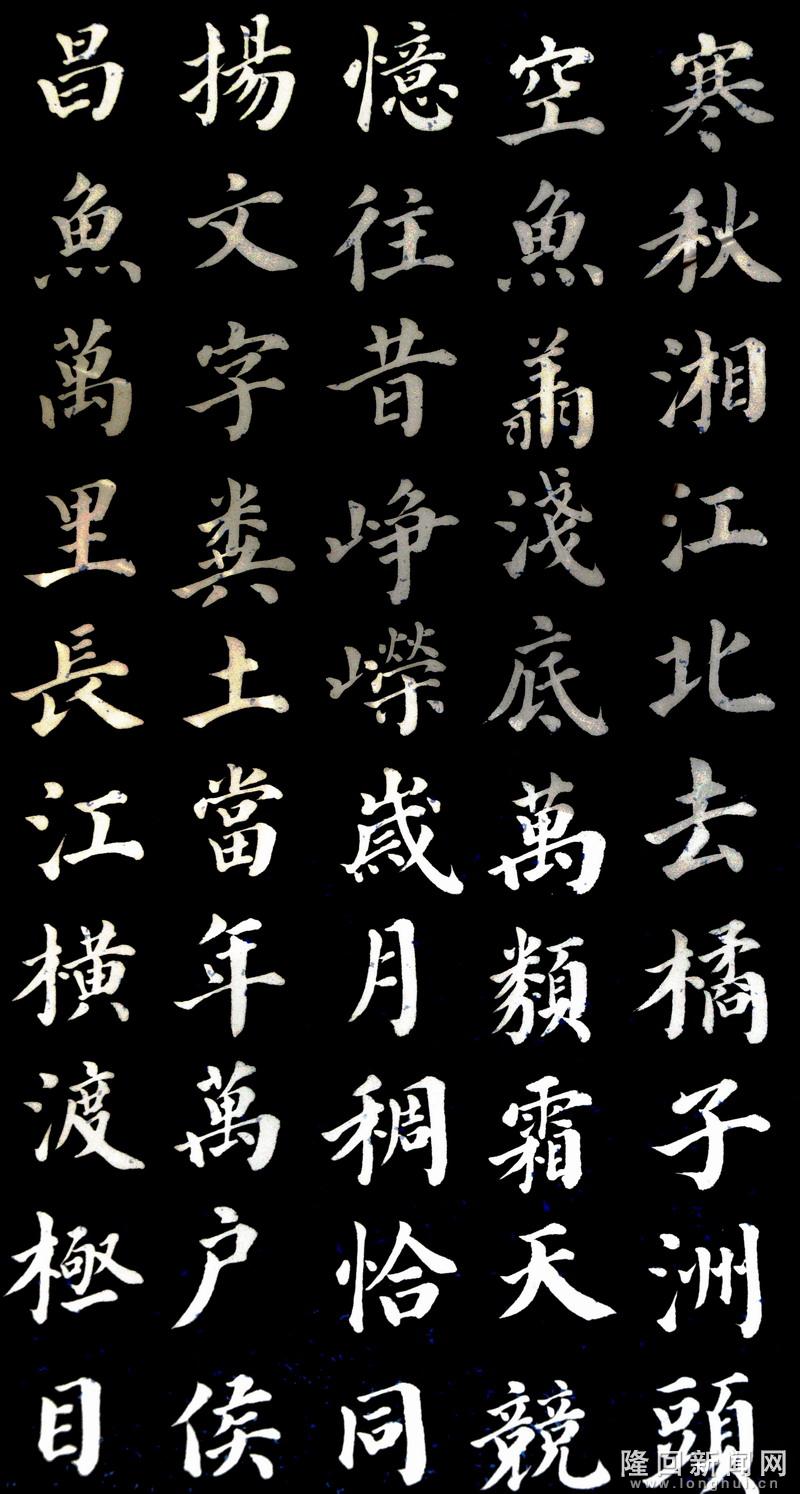 寒秋湘江北去橘子洲頭
空魚翦淺底萬類霜天競
憶往昔峥嶸歲月稠恰同
揚文字粪土當年萬户侯
昌魚萬里長江橫渡極目
隆回新闻网
www.longhui.cn